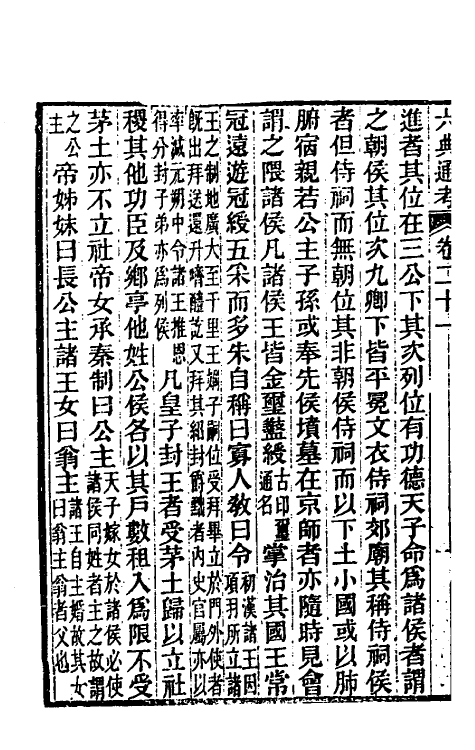 六典通考 卷二十一
進者其位在三公下其次列位有功德天子命為諸侯者謂
之朝侯其位次九卿下皆平冕文衣侍祠郊廟其稱侍祠侯
者但侍祠而無朝位其非朝侯侍祠而以下土小國或以肺
腑宿親若公主子孫或奉先侯墳墓在京師者亦隨時見會
謂之隈諸侯凡諸侯王皆金璽盭綬古印璽通名掌治其國王常
冠遠遊冠綬五采而多朱自稱曰寡人敎曰令初漢諸王因項羽所立諸
王之制地廣大至千里王嫡子嗣位受拜畢立於門外使者
旣出拜送還升嚌醴訖又拜其紹封者內史官屬亦以
率減元朔中令諸王推恩得分封子弟亦為列侯凡皇子封王者受茅土歸以立社
稷其他功臣及鄉亭他姓公侯各以其戶數租入為限不受
茅土亦不立社帝女承秦制曰公主天子嫁女於諸侯必使諸侯同姓者主之故謂
之公主帝姊妹曰長公主諸王女曰翁主諸王自主婚故其女曰翁主翁者父也